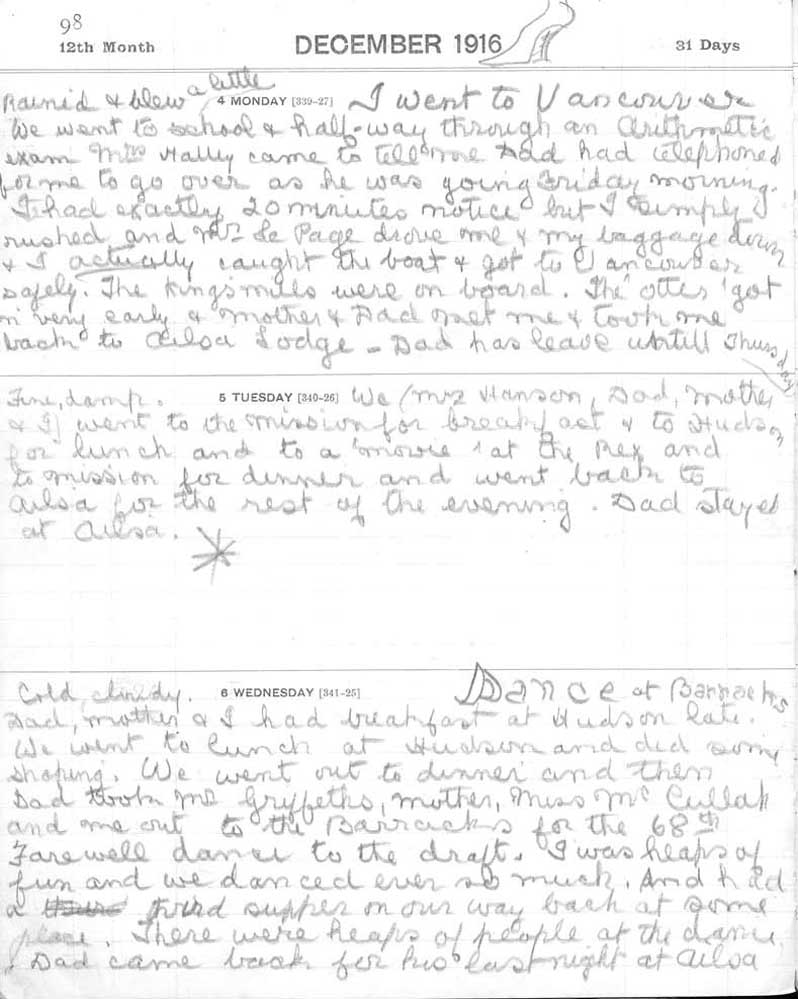 98
12th Month DECEMBER 1916 31 Days
Rained & blew a little 4 MONDAY [339-27] I went to Vancouver
We went to school & half-way through an Arithmetic
exam Mrs Halley came to tell me Dad had telephoned
for me to go over as he was going Friday morning.
I had exactly 20 minutes notice but I simply
rushed and Mr Le Page drove me & my baggage down
& I actually caught the boat & got to Vancouver
safely. The Kingsmills were on board. The otter got
in very early & mother & Dad met me & took me
back to Ailsa Lodge - Dad has leave untill Thursday
Fine, damp. 5 TUESDAY [340-26] We (Mrs Hanson, Dad, Mother
& I) went to the mission for breakfast & to Hudson
for lunch and to a 'movie' at the Rex and
to mission for dinner and went back to
Ailsa for the rest of the evening. Dad stayed
at Ailsa.
Cold, cloudy. 6 WEDNESDAY [341-25] Dance at Barracks
Dad, mother & I had breakfast at Hudson late.
We went to lunch at Hudson and did some
shoping. We went out to dinner and then
Dad took Mrs Gryffeths, mother, Miss McCullah
and me out to the Barracks for the 68th
Farewell dance to the draft. I was heaps of
fun and we danced ever so much. And had
a third supper on our way back at some
place. There were heaps of people at the dance.
Dad came back for his last night at Ailsa